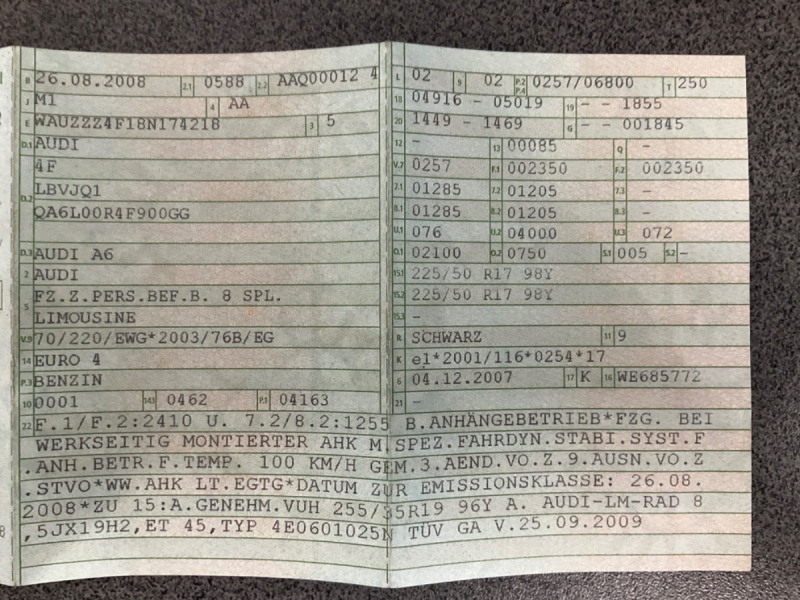 B 26.08.2008 2.1 0588 2.2 AAQ00012 4
J M1 4 AA
E WAUZZZ4F18N174218 3 5
D.1 AUDI
4F
D.2 LBVJQ1
QA6L00R4F900GG
D.3 AUDI A6
2 AUDI
5 FZ.Z.PERS.BEF.B. 8 SPL.
LIMOUSINE
V.9 70/220/EWG*2003/76B/EG
14 EURO 4
P.3 BENZIN
10 0001 14.1 0462 P.1 04163
L 02 9 02 P.2 P.4 0257/06800 T 250
18 04916 - 05019 19 - - 1855
20 1449 - 1469 G - - 001845
12 - 13 00085 Q -
V.7 0257 F.1 002350 F.2 002350
7.1 01285 7.2 01205 7.3 -
8.1 01285 8.2 01205 8.3 -
U.1 076 U.2 04000 U.3 072
O.1 02100 O.2 0750 S.1 005 S.2 -
15.1 225/50 R17 98Y
15.2 225/50 R17 98Y
15.3 -
R SCHWARZ 11 9
K e1*2001/116*0254*17
6 04.12.2007 17 K 16 WE685772
21 -
22 F.1/F.2:2410 U. 7.2/8.2:1255 B.ANHÄNGEBETRIEB*FZG. BEI
WERKSEITIG MONTIERTER AHK M.SPEZ.FAHRDYN.STABI.SYST.F
.ANH.BETR.F.TEMP. 100 KM/H GEM.3.AEND.VO.Z.9.AUSN.VO.Z
.STVO*WW.AHK LT.EGTG*DATUM ZUR EMISSIONSKLASSE: 26.08.
2008*ZU 15:A.GENEHM.VUH 255/35R19 96Y A. AUDI-LM-RAD 8
,5JX19H2,ET 45,TYP 4E0601025N TÜV GA V.25.09.2009